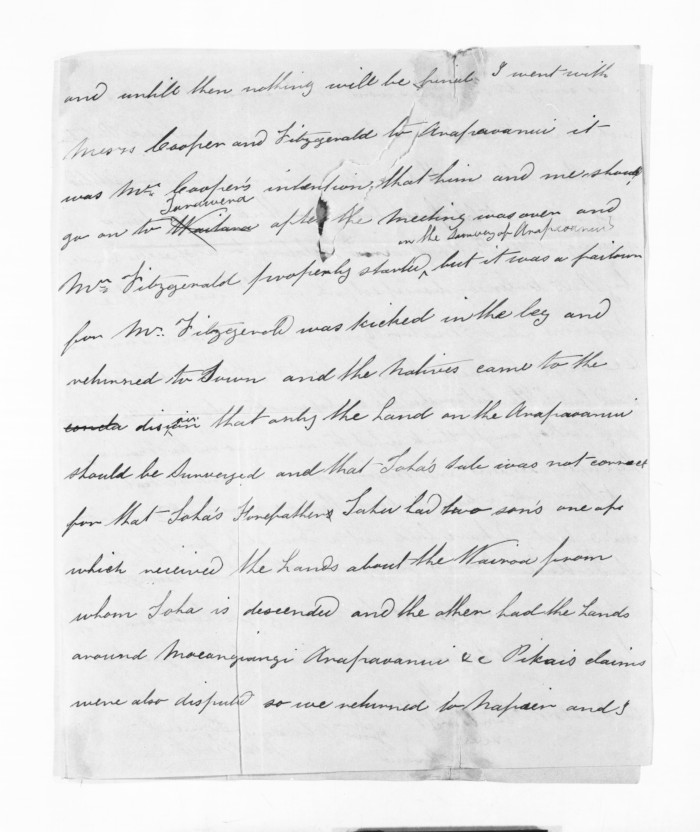 and untill then nothing will be final I went with
Messrs Cooper and Fitzgerald to Arapavanui it
was Mr. Cooper's intention, that him and me should
Tarawera
go on to Waitara after the meeting was over and
on the Survey of Arapavanui
Mr. Fitzgerald properly started, but it was a failown
for Mr. Fitzgerald was kicked in the leg and
returned to Town and the Natives came to the
disision that only the Land on the Arapavanui
should be Surveyed and that Toha's sale was not correct
for that Toha's Forefather Tahu had two son's one of
which received the Lands about the Wairoa from
whom Toha is descended and the other had the Lands
around Moeangiangi Arapavanui &c Pikais claims
were also disputed so we returned to Napier and I